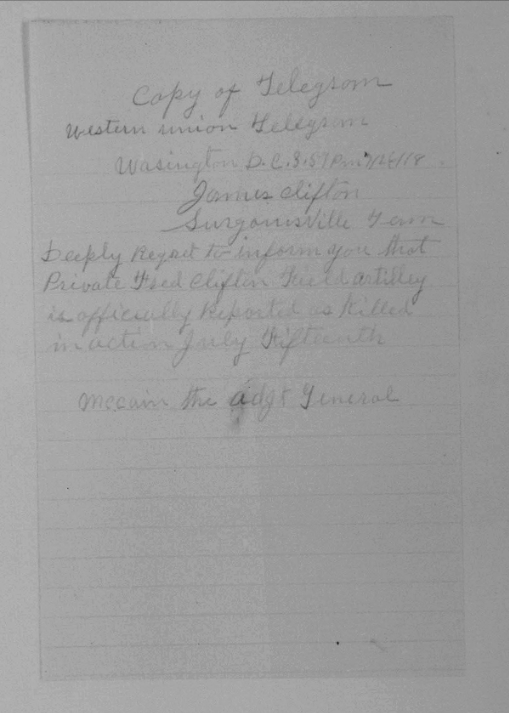 Copy of Telegram
Western union Telegram
Wasington D.C. 8.51 Pm
James Clifton
Surgoinsville Tenn
Deeply Regret to inform you that
Private Fred Clifton Field artilley
is officially Reported as Killed
in action July Fifteenth
Mccain the adgt General